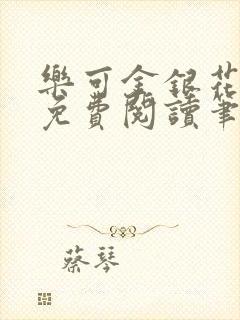 樂可金銀花
免費閱讀筆
蔡琴